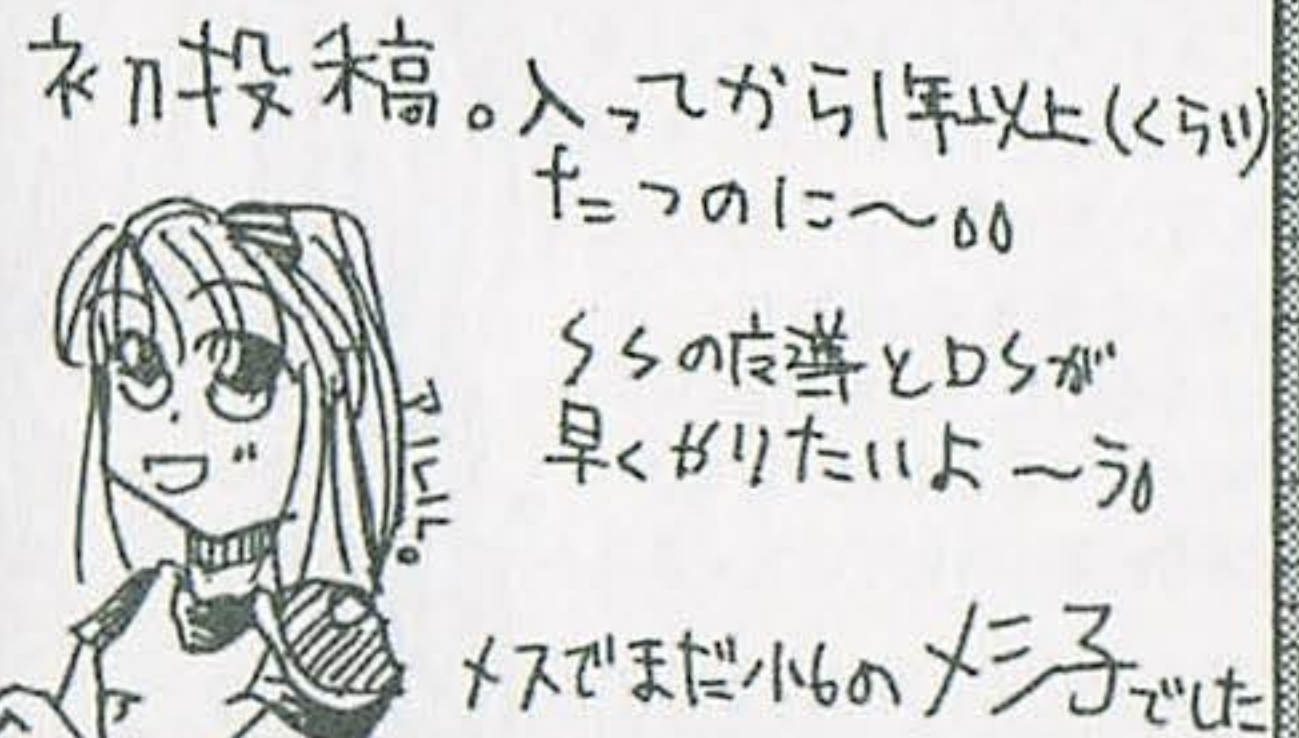 初投稿。入ってから1年以上(くらい)
たつのに〜。。
SSの魔導とDSが
早くかりたいよ〜う。
アルル。
メスでまだ小6のメミ子でした